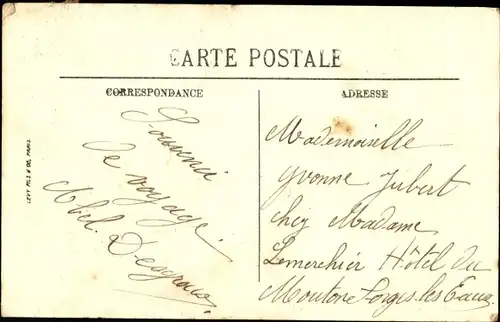 CARTE POSTALE
CORRESPONDANCE
ADRESSE
Souvenir
de voyage.
Abel.
Mademoiselle
Yvonne Jubert
chez Madame
Lemerchier Hôtel du
Mouton Forges-les-Eaux
LEVY FILS & CIE, PARIS